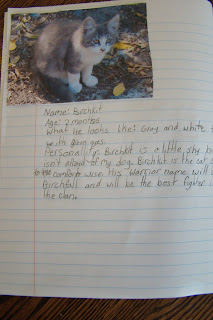 Name: Birchkit
Age: 2 months
What he looks like: Gray and white
with green eyes.
Personality: Birchkit is a little shy but
isn't afraid of my dog. Birchkit is the cat
wise. His Warrior name will
Birchfall and will be the best fighter in
the clan.